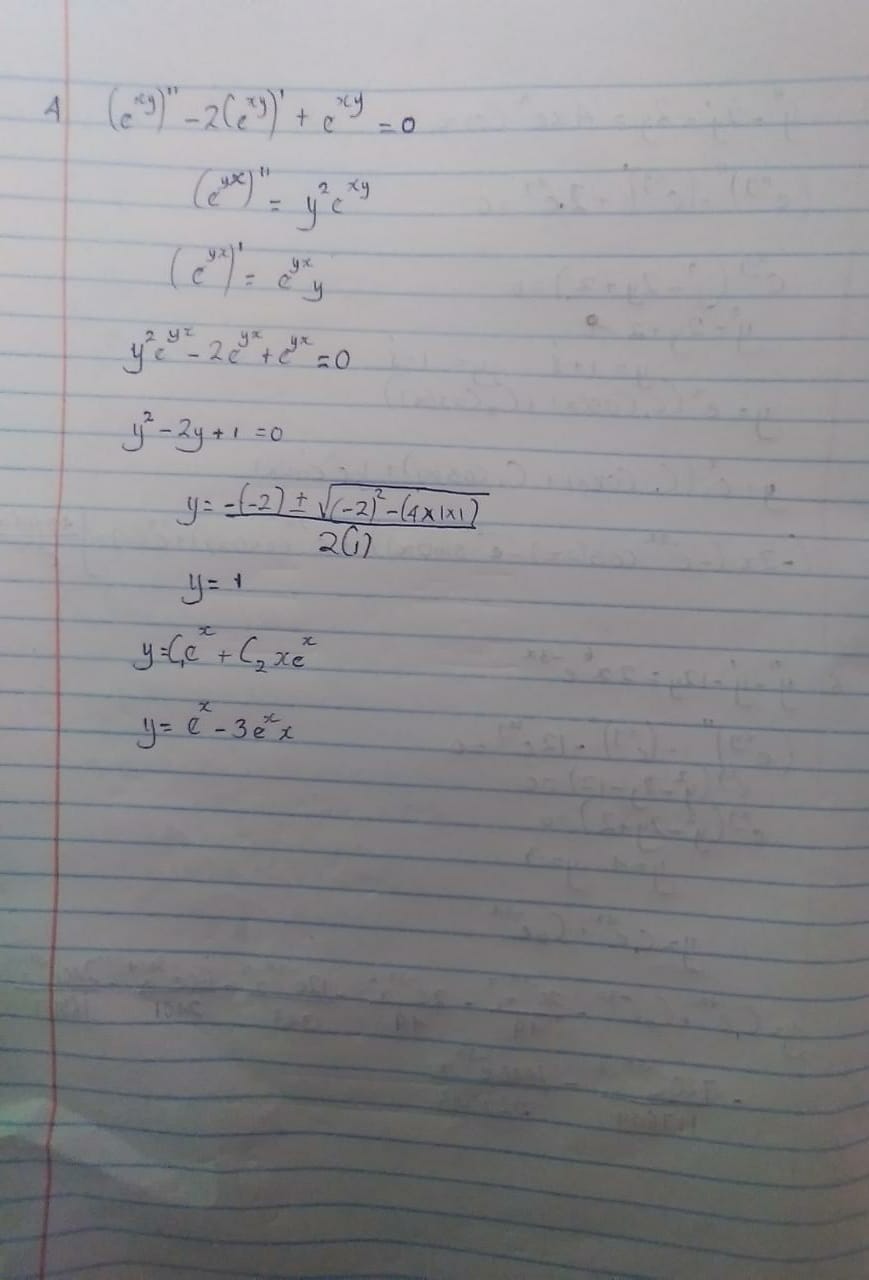 A (e^{xy})'' - 2(e^{xy})' + e^{xy} = 0
(e^{yx})'' = y^2 e^{xy}
(e^{yx})' = e^{yx} y
y^2 e^{yx} - 2e^{yx} + e^{yx} = 0
y^2 - 2y + 1 = 0
y = \frac{-(-2) ± \sqrt{(-2)^2 - (4×1×1)}}{2(1)}
y = 1
y = C_1 e^x + C_2 x e^x
y = e^x - 3e^x x